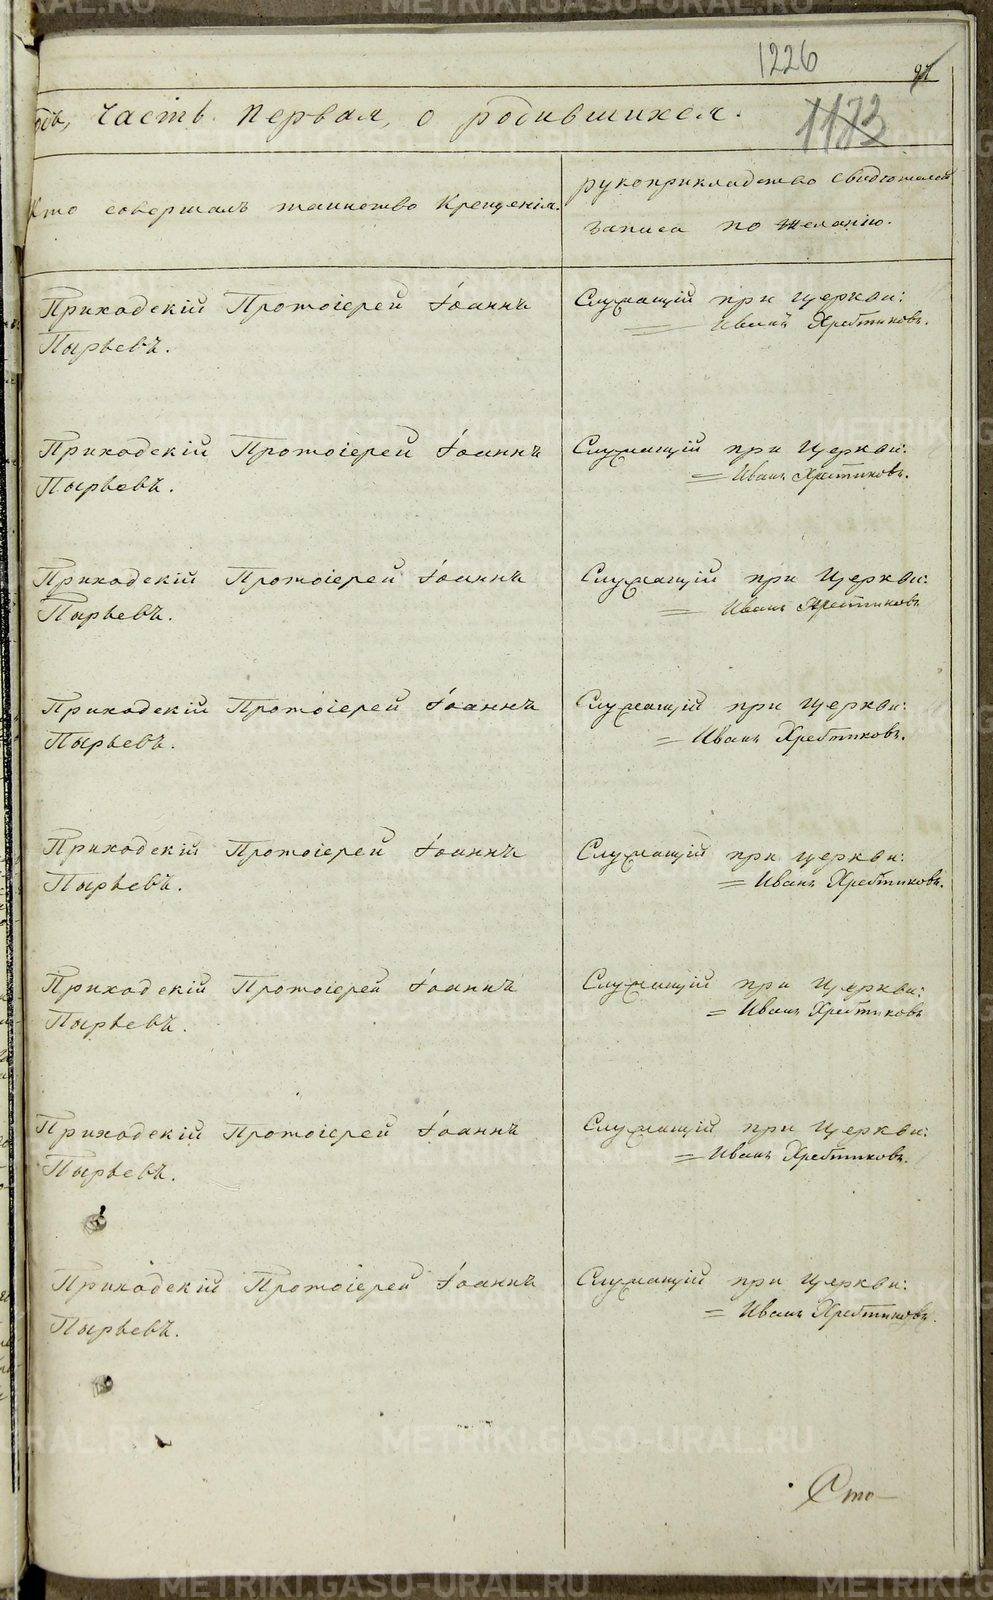 1226
97
1173
одъ, часть первая, о родившихся.
Кто совершалъ таинство Крещенія.
рукоприкладство свидѣтелей
записи по желанію.
Приходскій Протоіерей Іоаннъ
Пырьевъ.
Служащій при церкви:
Иванъ Хребтиковъ.
Приходскій Протоіерей Іоаннъ
Пырьевъ.
Служащій при Церкви:
Иванъ Хребтиковъ.
Приходскій Протоіерей Іоаннъ
Пырьевъ.
Служащій при Церкви:
Иванъ Хребтиковъ
Приходскій Протоіерей Іоаннъ
Пырьевъ.
Служащій при Церкви:
Иванъ Хребтиковъ.
Приходскій Протоіерей Іоаннъ
Пырьевъ.
Служащій при церкви:
Иванъ Хребтиковъ.
Приходскій Протоіерей Іоаннъ
Пырьевъ.
Служащій при Церкви:
Иванъ Хребтиковъ
Приходскій Протоіерей Іоаннъ
Пырьевъ.
Служащій при Церкви:
Иванъ Хребтиковъ.
Приходскій Протоіерей Іоаннъ
Пырьевъ.
Служащій при Церкви:
Иванъ Хребтиковъ.
METRIKI.GASO-URAL.RU
Сто
METRIKI.GASO-URAL.RU